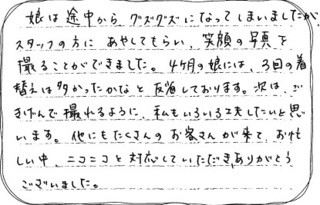 娘は途中から、グズグズになってしまいましたが
スタッフの方に あやしてもらい、笑顔の写真を
撮ることができました。4ヶ月の娘には、3回の着
替えは多かったかなと反省しております。次は、ご
きげんで撮れるように、私もいろいろ工夫したいと思
います。他にもたくさんのお客さんが来て、お忙
しい中、ニコニコと対応していただき、ありがとう
ございました。